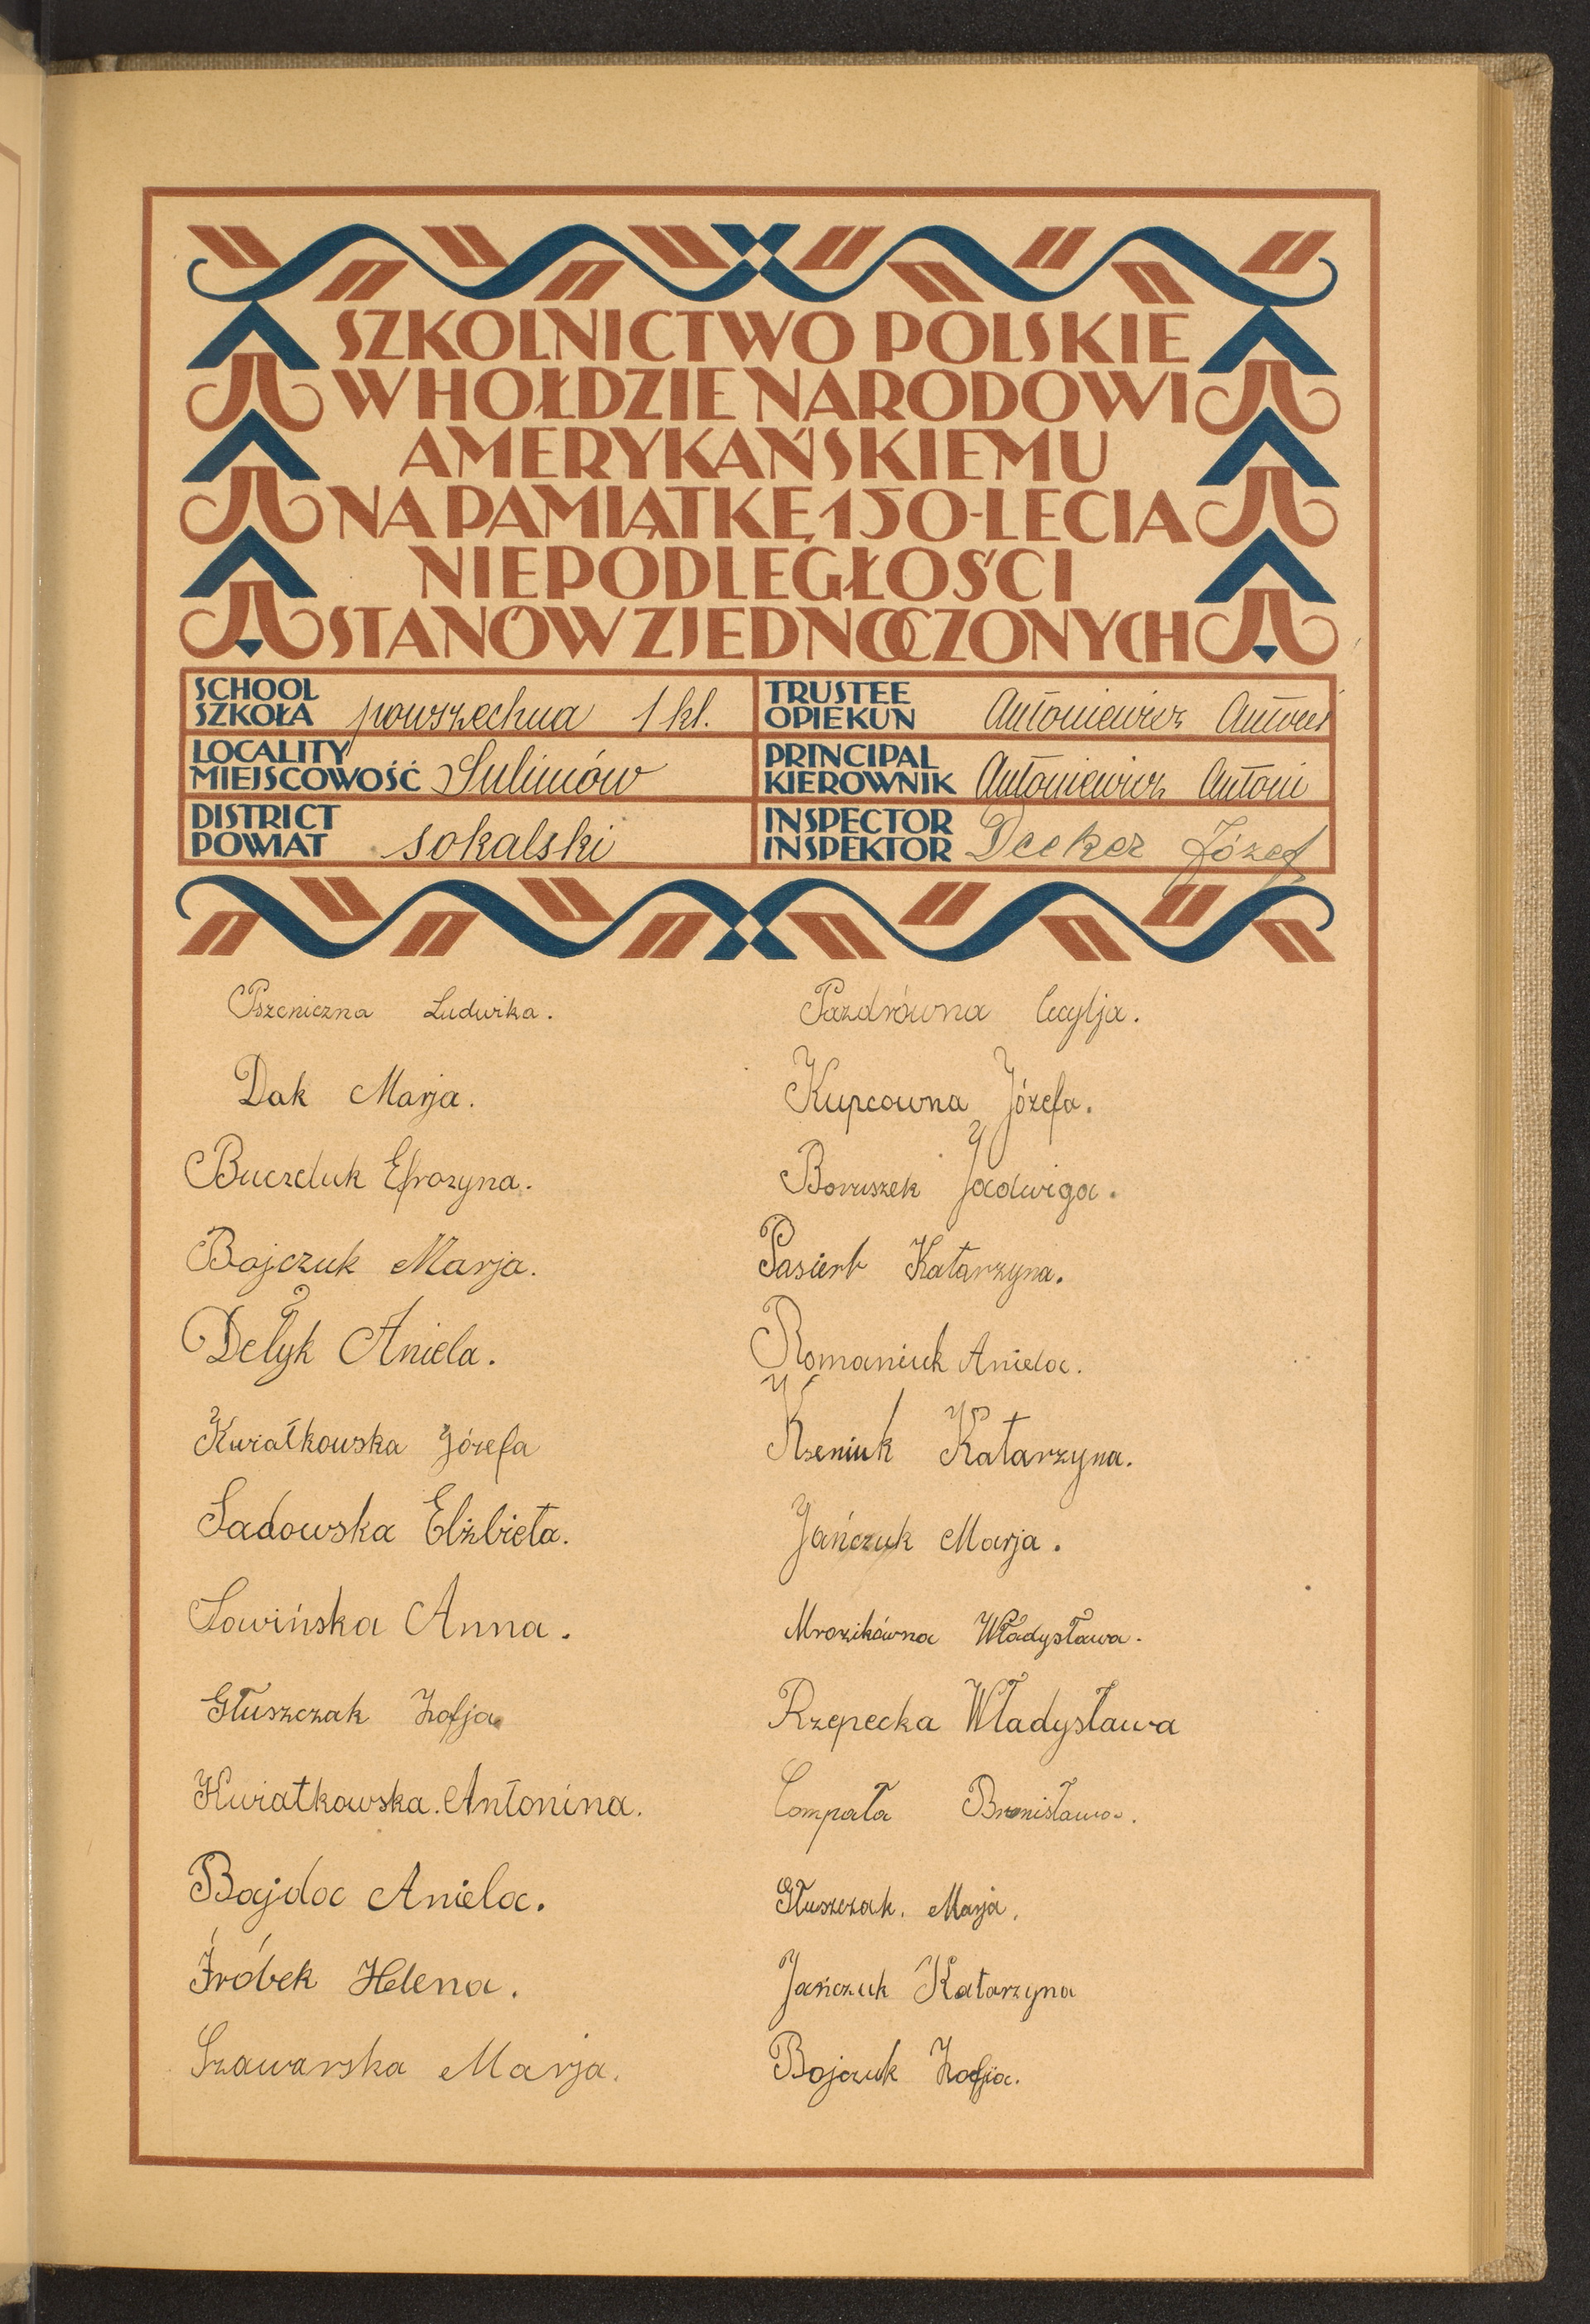 SZKOLNICTWO POLSKIE
W HOŁDZIE NARODOWI
AMERYKAŃSKIEMU
NA PAMIĄTKĘ 150-LECIA
NIEPODLEGŁOŚCI
STANÓW ZJEDNOCZONYCH
SCHOOL
SZKOŁA powszechna 1 kl.
TRUSTEE
OPIEKUN Antoniewicz Antoni
LOCALITY
MIEJSCOWOŚĆ Sulimów
PRINCIPAL
KIEROWNIK Antoniewicz Antoni
DISTRICT
POWIAT sokalski
INSPECTOR
INSPEKTOR Decker Józef
Pszeniczna Ludwika.
Dak Marja.
Buczeluk Efrozyna.
Bojczuk Marja.
Detyk Aniela.
Kwiatkowska Józefa
Sadowska Elżbieta.
Sowińska Anna.
Głuszczak Zofja
Kwiatkowska. Antonina.
Bajda Aniela.
Źróbek Helena.
Szawarska Marja.
Pazdrówna Cecylja.
Kupcowna Józefa.
Boruszek Jadwiga.
Pasierb Katarzyna.
Romaniuk Aniela.
Kseniuk Katarzyna.
Jańczuk Marja.
Mrozikówna Władysława.
Rzepecka Władysława
Compała Bronisława.
Głuszczak. Marja.
Jańczuk Katarzyna
Bojczuk Zofja.